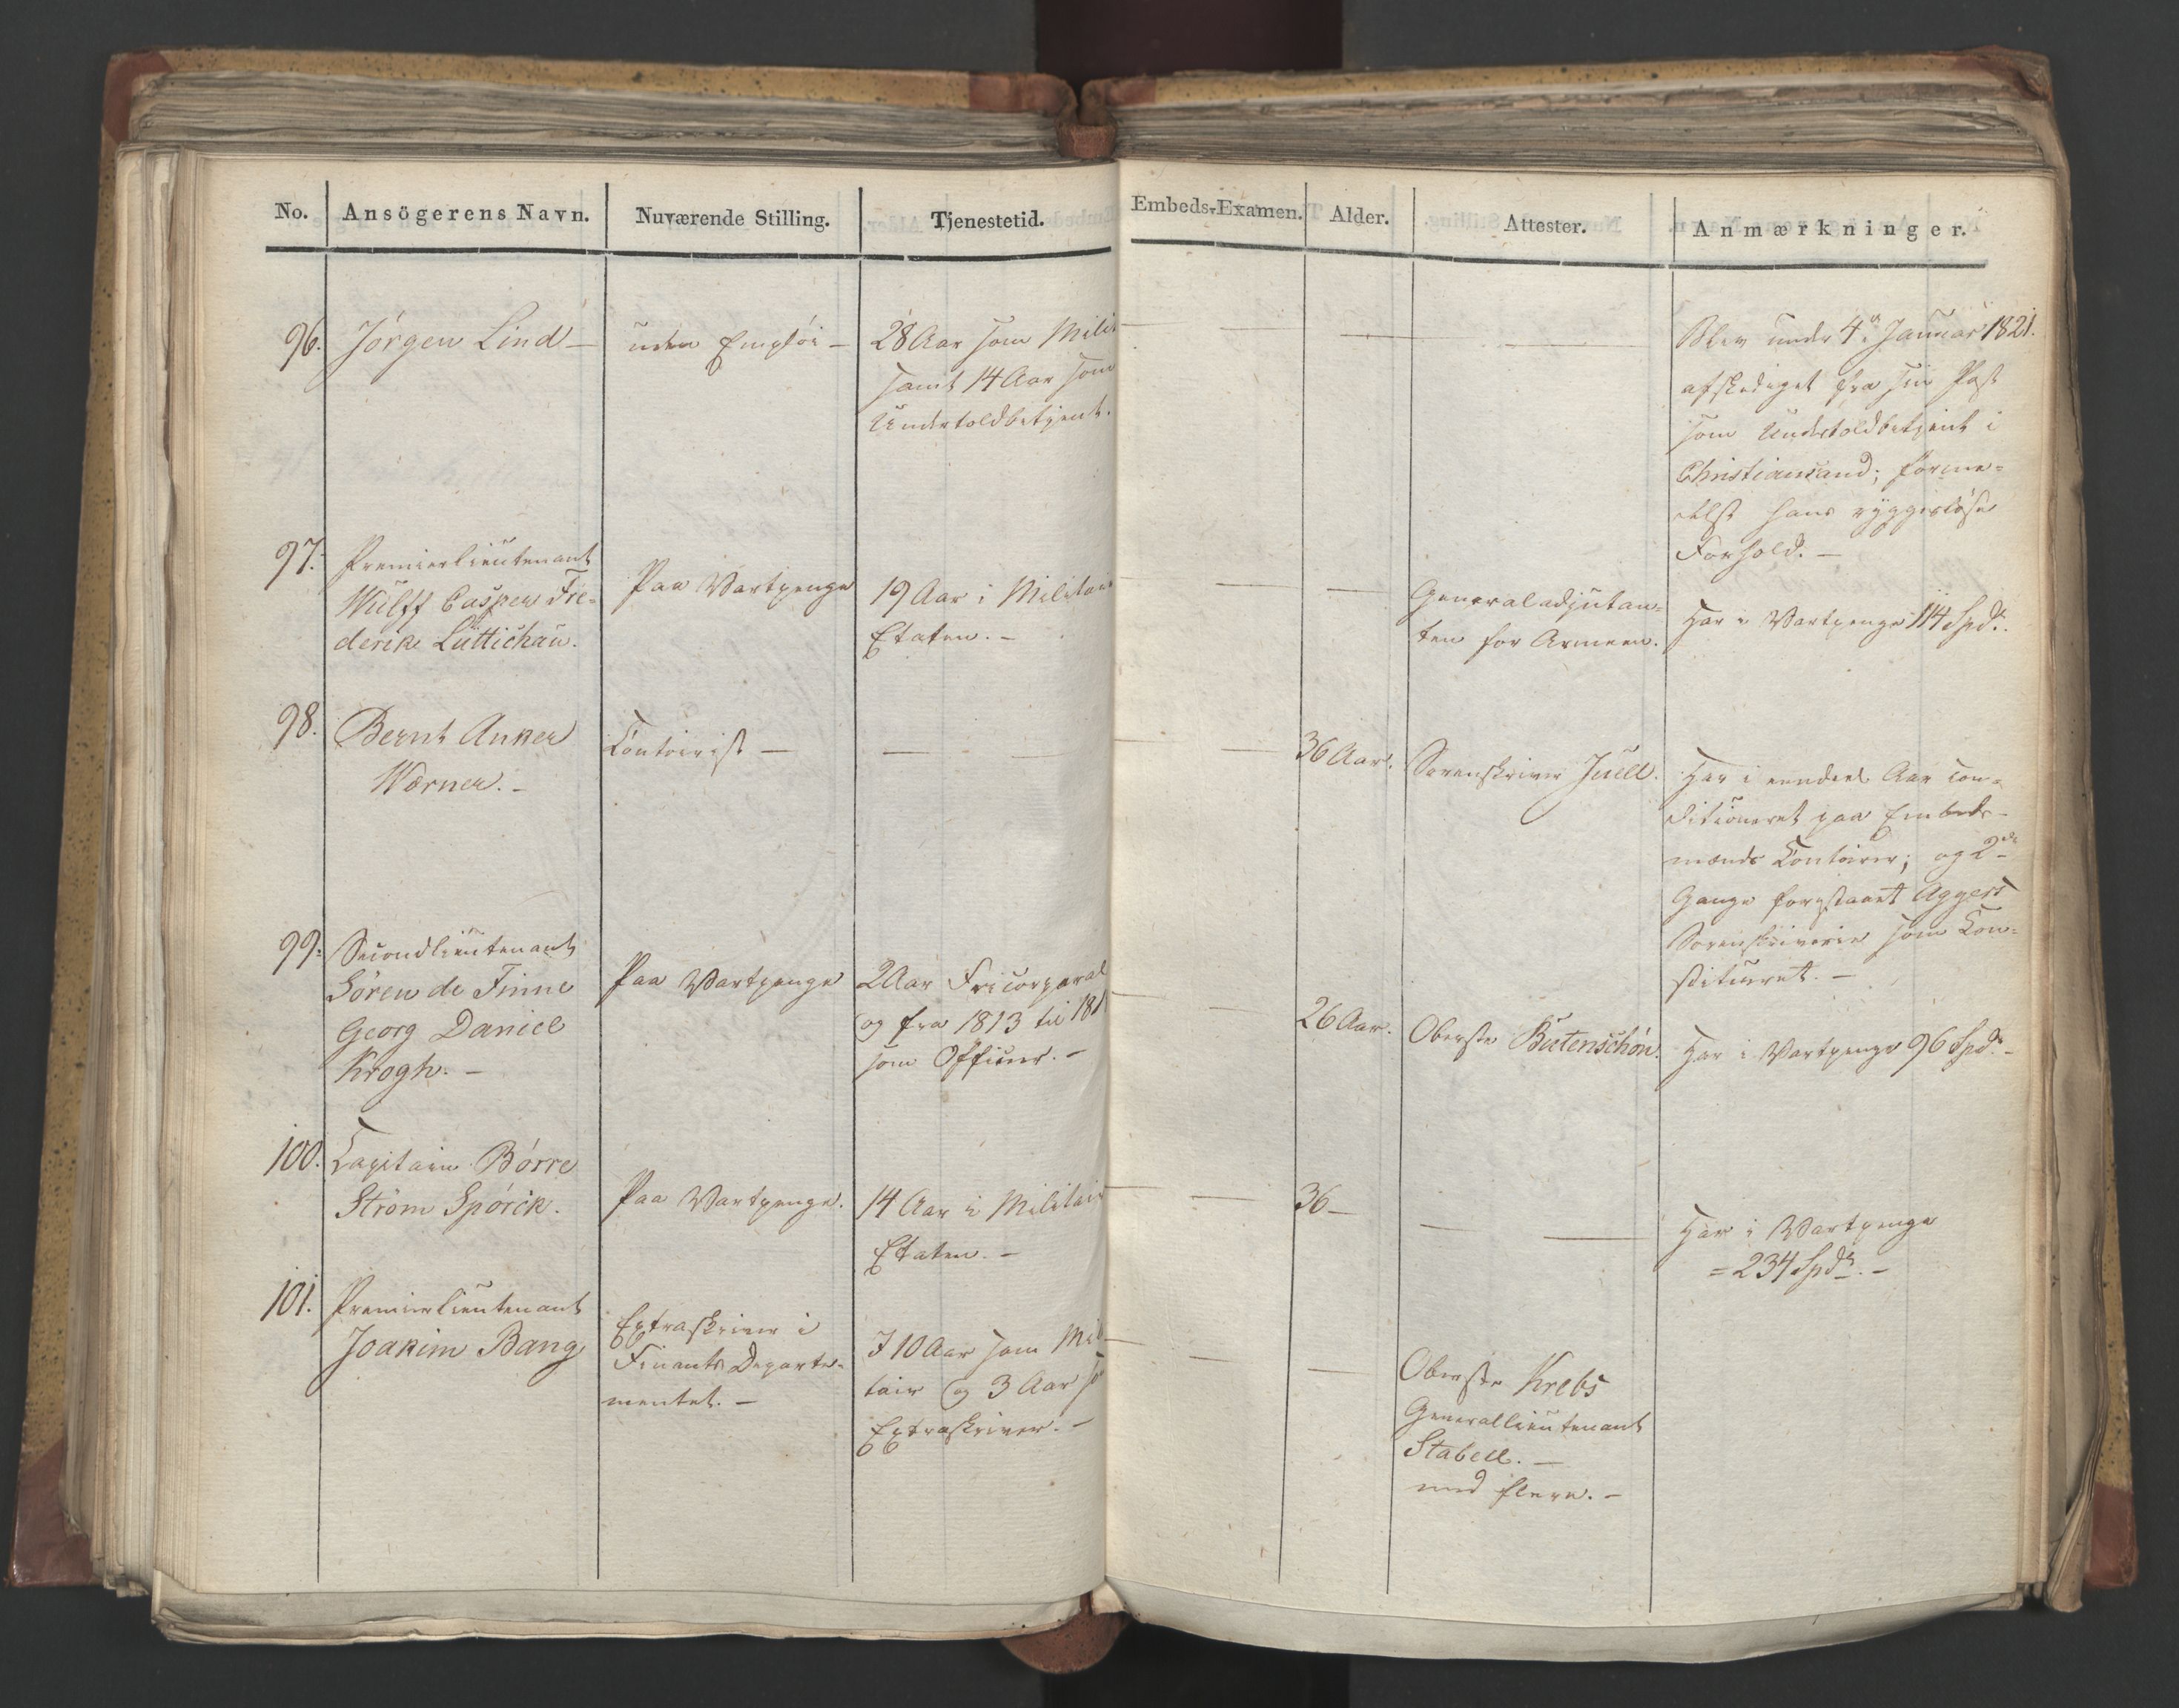 No.
Ansögerens Navn.
Nuværende Stilling.
Tjenestetid.
Embeds-Examen.
Alder.
Attester.
Anmærkninger.
96.
Jörgen Lind —
uden Emploi —
28 Aar som Milit
samt 14 Aar som
Undertoldbetjent.
Blev under 4de Januar 1821.
afskediget fra sin Post
som Undertoldbetjent i
Christiansand; forme-
delst hans ryggesløse
Forhold. —
97.
Premierlieutenant
Wülff Casper Fre-
derik Lüttichau.
Paa Vartpenge
19 Aar i Militair
Etaten. —
Generaladjutan-
ten for Armeen.
Har i Vartpenge 114 Spdr.
98.
Bernt Anker
Wærner. —
Contoirist —
36 Aar.
Sorenskriver Juell.
Har i eendeel Aar con-
ditioneret paa Embeds-
mænds Contoirer; og 2de
Gange forestaaet Aggers
Sorenskriverie som Con-
stitueret. —
99.
Secondlieutenant
Sören de Finne
Georg Daniel
Krogh. —
Paa Vartpenge
2 Aar Fricorporal
og fra 1813 til 181
som Officer. —
26 Aar.
Oberste Butenschön.
Har i Vartpenge 96 Spdr. —
100.
Capitain Börre
Ström Spörck.
Paa Vartpenge.
14 Aar i Militair
Etaten. —
36 —
Har i Vartpenge
= 234 Spdr. —
101.
Premierlieutenant
Joakim Bang
Extraskriver i
Finants Departe-
mentet. —
I 10 Aar som Mili
tair og 3 Aar so
Extraskriver. —
Oberste Krebs
Generallieutenant
Stabell. —
med flere. —